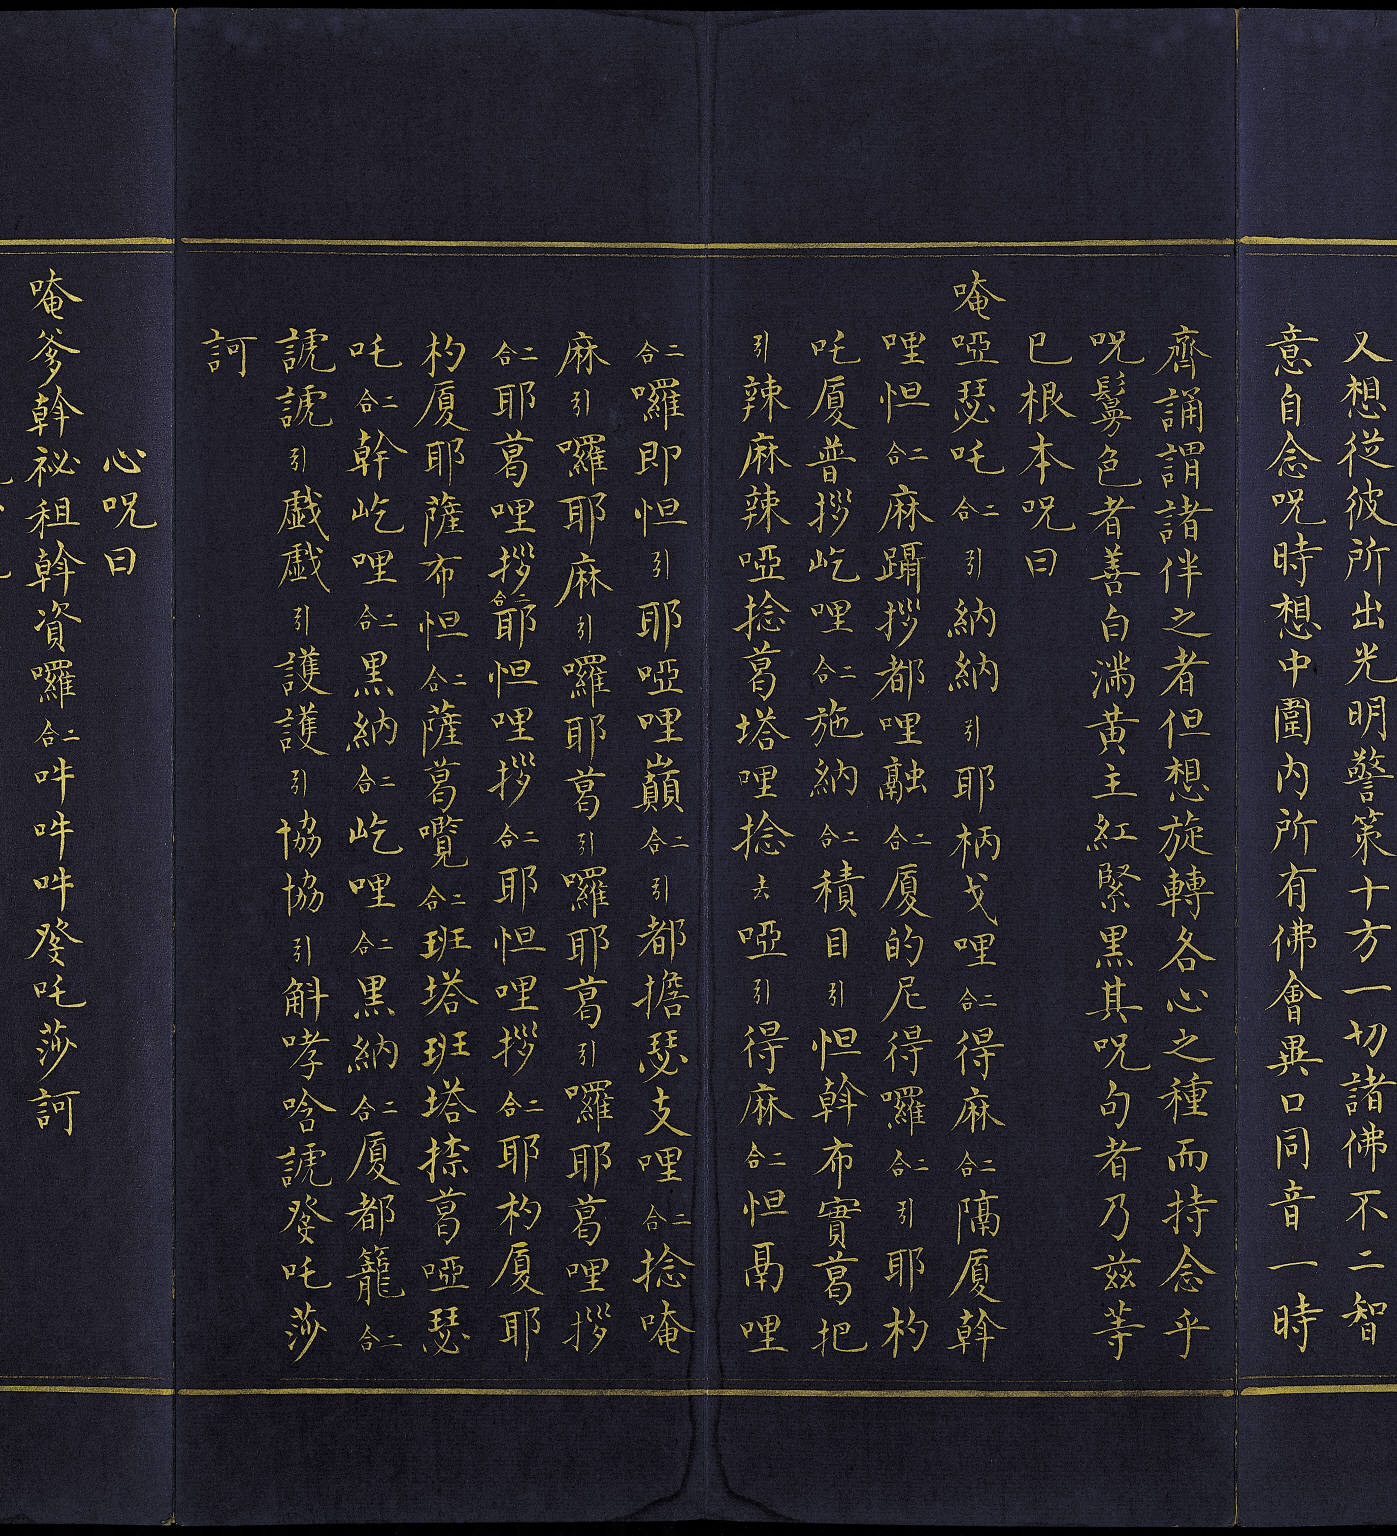 又想從彼所出光明警策十方一切諸佛不二智
意自念呪時想中圍內所有佛會異口同音一時
齊誦謂諸伴之者但想旋轉各心之種而持念乎
呪鬘色者善白滿黃主紅緊黑其呪句者乃茲等
已根本呪曰
唵啞瑟吒二合引納納引耶柄戈哩二合得麻二合隔厦斡
哩怛二合麻躡拶都哩融二合厦的尼得囉二合引耶杓
吒厦普拶屹哩二合施納二合積目引怛斡布實葛把
引辣麻辣啞捻葛塔哩捻去啞引得麻二合怛鬲哩
二合囉即怛引耶啞哩巔二合引都擔瑟支哩二合捻唵
麻引囉耶麻引囉耶葛引囉耶葛引囉耶葛哩拶
二合耶葛哩拶二合耶怛哩拶二合耶怛哩拶二合耶杓厦耶
杓厦耶薩布怛二合薩葛囕二合班塔班塔捺葛啞瑟
吒二合幹屹哩二合黑納二合屹哩二合黑納二合厦都籠二合
謕謕引戲戲引護護引協協引斛哮唅謕癹吒莎
訶
心呪曰
唵爹斡祕租斡資囉二合吽吽吽癹吒莎訶